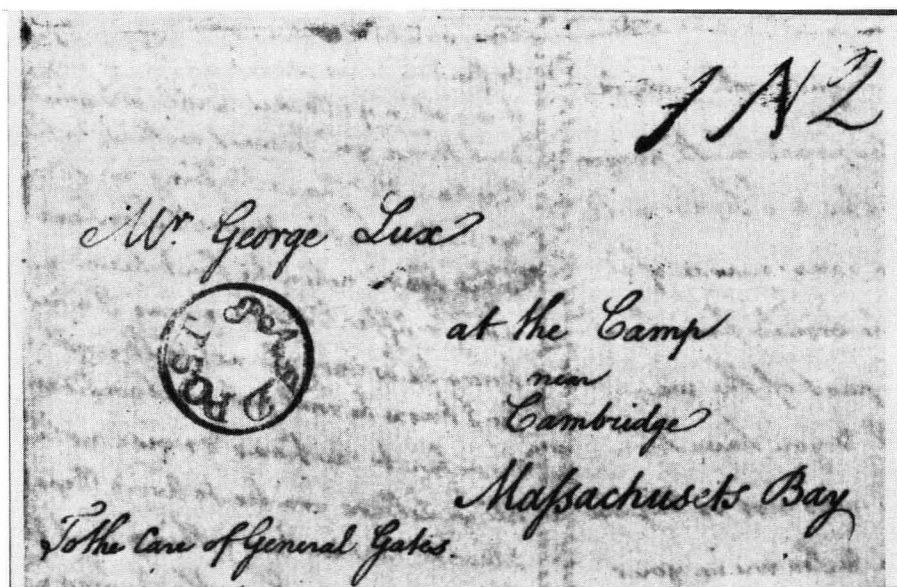 1 N 2
Mr George Lux
POST PAID
at the Camp
near
Cambridge
Maſsachusets Bay
To the Care of General Gates.